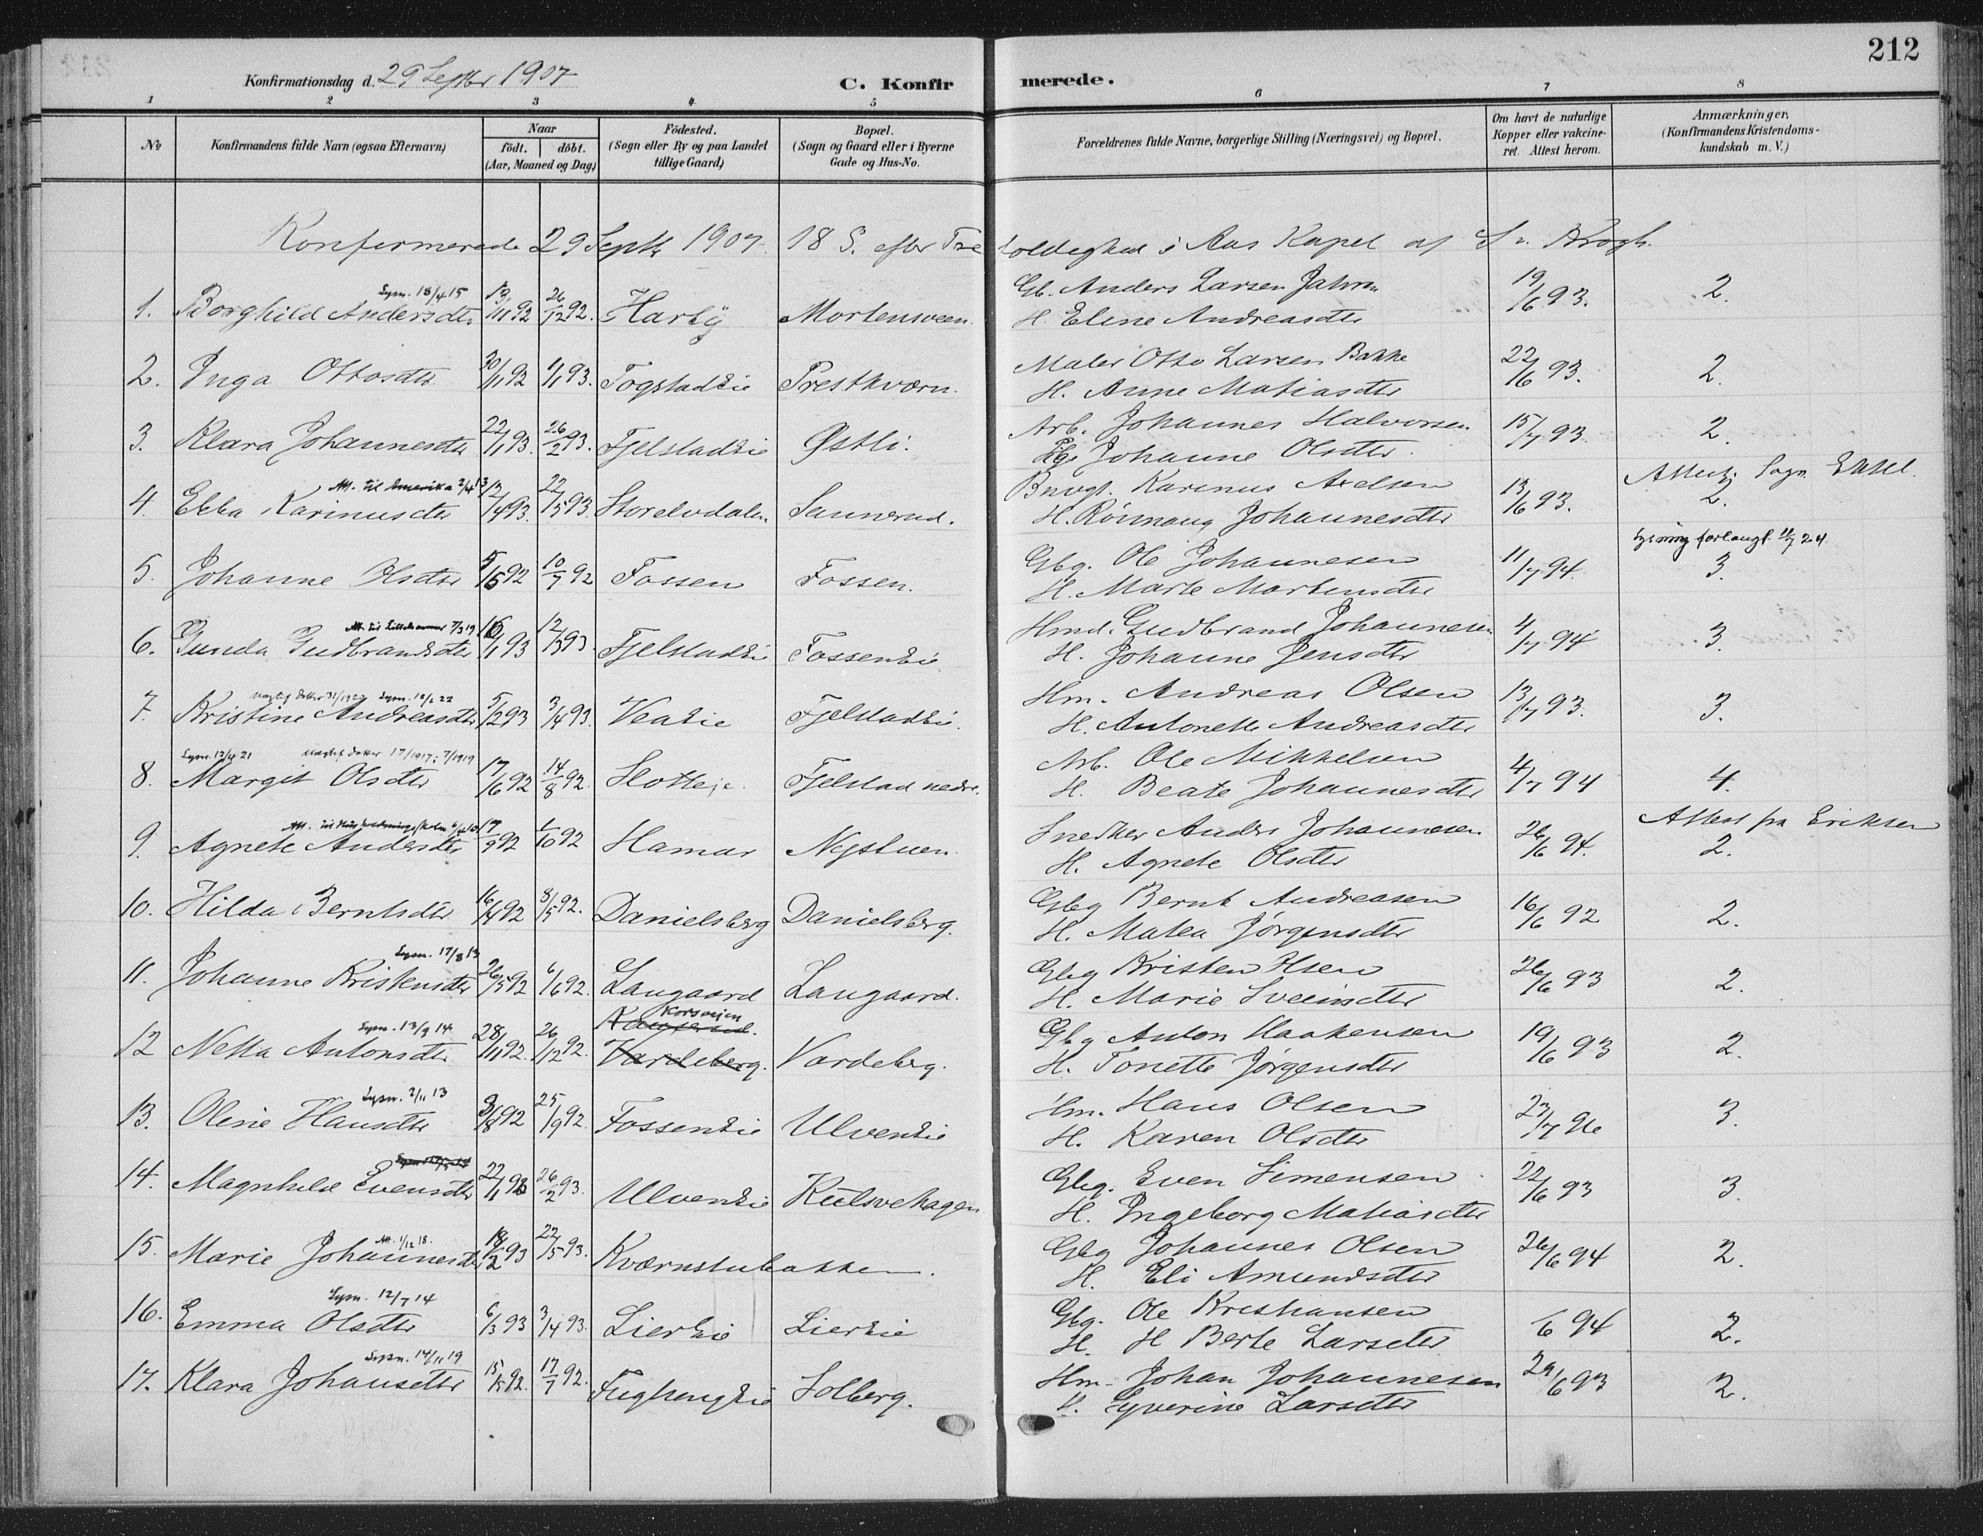 212
Konfirmationsdag d. 29 Septbr 1907
C. Konfirmerede.
1 2 3 4 5 6 7 8
No
Konfirmandens fulde Navn (ogsaa Efternavn)
Naar
födt. döbt.
(Aar, Maaned og Dag)
Födested.
(Sogn eller By og paa Landet
tillige Gaard)
Bopæl.
(Sogn og Gaard eller i Byerne
Gade og Hus-No.
Forældrenes fulde Navne, borgerlige Stilling (Næringsvei) og Bopæl.
Om havt de naturlige
Kopper eller vakcine-
ret. Attest herom.
Anmærkninger,
(Konfirmandens Kristendoms-
kundskab m. V.)
Konfirmerede 29 Septb 1907. 18 S. efter Trefoldighed i Aas Kapel af S. Krogh.
Lysn. 18/4 15
1. Borghild Andersdtr 13/11 92 26/12 92. Harby Mortensveen. Gb. Anders Larsen Jahren 19/6 93. 2.
H. Eline Andreasdtr
2. Inga Ottosdtr 30/11 92 1/1 93. Togstadeie Prestkværn. Maler Otto Larsen Bakke 22/6 93. 2.
H. Anne Matiasdtr
3. Klara Johannesdtr 22/1 93. 26/2 93. Fjelstadeie Østli. Arb. Johannes Halvorsen 15/7 93. 2.
Johanne Olsdtr.
Att. til Amerika 2/4 13
4. Ebba Karinusdtr 12/4 93. 22/5 93. Storelvdalen Sannerud. Bnvgt. Karinus Axelsen 13/6 93. 2.
H. Rönnaug Johannesdtr
Lysning forlangt 11/7 24.
5. Johanne Olsdtr 5/5 92 10/7 92 Fossen Fossen. Gbg. Ole Johannesen 11/7 94. 3.
H. Marte Martensdtr
Att. til Lillehammer 7/3 19
6. Gunda Gudbrandsdtr 16/1 93 12/3 93 Fjelstadeie Fosseneie Hmd. Gudbrand Johannesen 4/7 94 3.
H. Johanne Jensdtr
Uægtef. datter 31/1922 Lysn. 12/1 22
7. Kristine Andreasdtr 5/2 93 3/4 93. Veaeie Fjelstadeie. Hm. Andreas Olsen 13/7 93. 3.
H. Antonette Andreasdtr
Lysn. 13/4 21 Uægtef. datter 17/1917; 7/1919
8. Margit Olsdtr 17/6 92 14/8 92. Slotteje. Fjelstad nedre. Arb. Ole Mikkelsen 4/7 94 4.
H. Beate Johannesdtr
9. Agnete Andersdtr 17/9 92 1/10 92 Hamar Nystuen. Snedker Anders Johannesen 26/6 94. Attest fra Eriksen 2.
H. Agnete Olsdtr
10. Hilda Berntsdtr 16/4 92 8/5 92. Danielsberg Danielsberg. Gbg Bernt Andreasen 16/6 92 2.
H. Matea Jørgensdtr
Lysn. 17/8 13
11. Johanne Kristensdtr 26/5 92 6/6 92. Langaard Langaard. Gbg Kristen Olsen 26/6 93 2.
H. Marie Sveinsdtr
Lysn. 13/9 14 Korsveien
12 Netta Antonsdtr 28/11 92. 26/12 92. Vardeberg. Vardebeg. Gbg Anton Haakensen 19/6 93 2.
H. Tonette Jørgensdtr
Lysn. 2/11 13
13. Oline Hansdtr 3/8 92 25/9 92. Fosseneie Ulveneie Hm. Hans Olsen 23/7 96 3.
H. Karen Olsdtr
14. Magnhild Evensdtr 22/1 93 26/2 93. Ulveneie Kulsvehagen Gbg. Even Simensen 22/6 93 3.
H. Ingeborg Matiasdtr
Att. 1/12 18.
15. Marie Johannesdtr 18/2 93 22/5 93. Kværnstubakken. Gbg Johannes Olsen 26/6 94 2.
H. Eli Amundsdtr
Lysn. 12/7 14
16. Emma Olsdtr 6/3 93 3/4 93. Liereie Liereie Gbg. Ole Kristiansen /6 94 2.
H. H Berte Larsdtr
Lysn. 14/11 19
17. Klara Johansdtr 15/5 92. 17/7 92. Fuglsengeie Solberg. Hm. Johan Johannesen 29/6 93 2.
H. Syverine Larsdtr